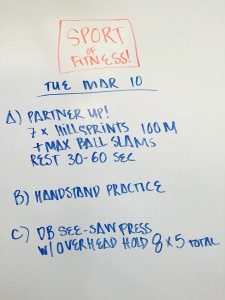 SPORT
OF
FITNESS!
TUE MAR 10
A) PARTNER UP!
7 x HILL SPRINTS 100M
+ MAX BALL SLAMS
REST 30-60 SEC
B) HANDSTAND PRACTICE
C) DB SEE-SAW PRESS
W/ OVERHEAD HOLD 8 x 5 TOTAL